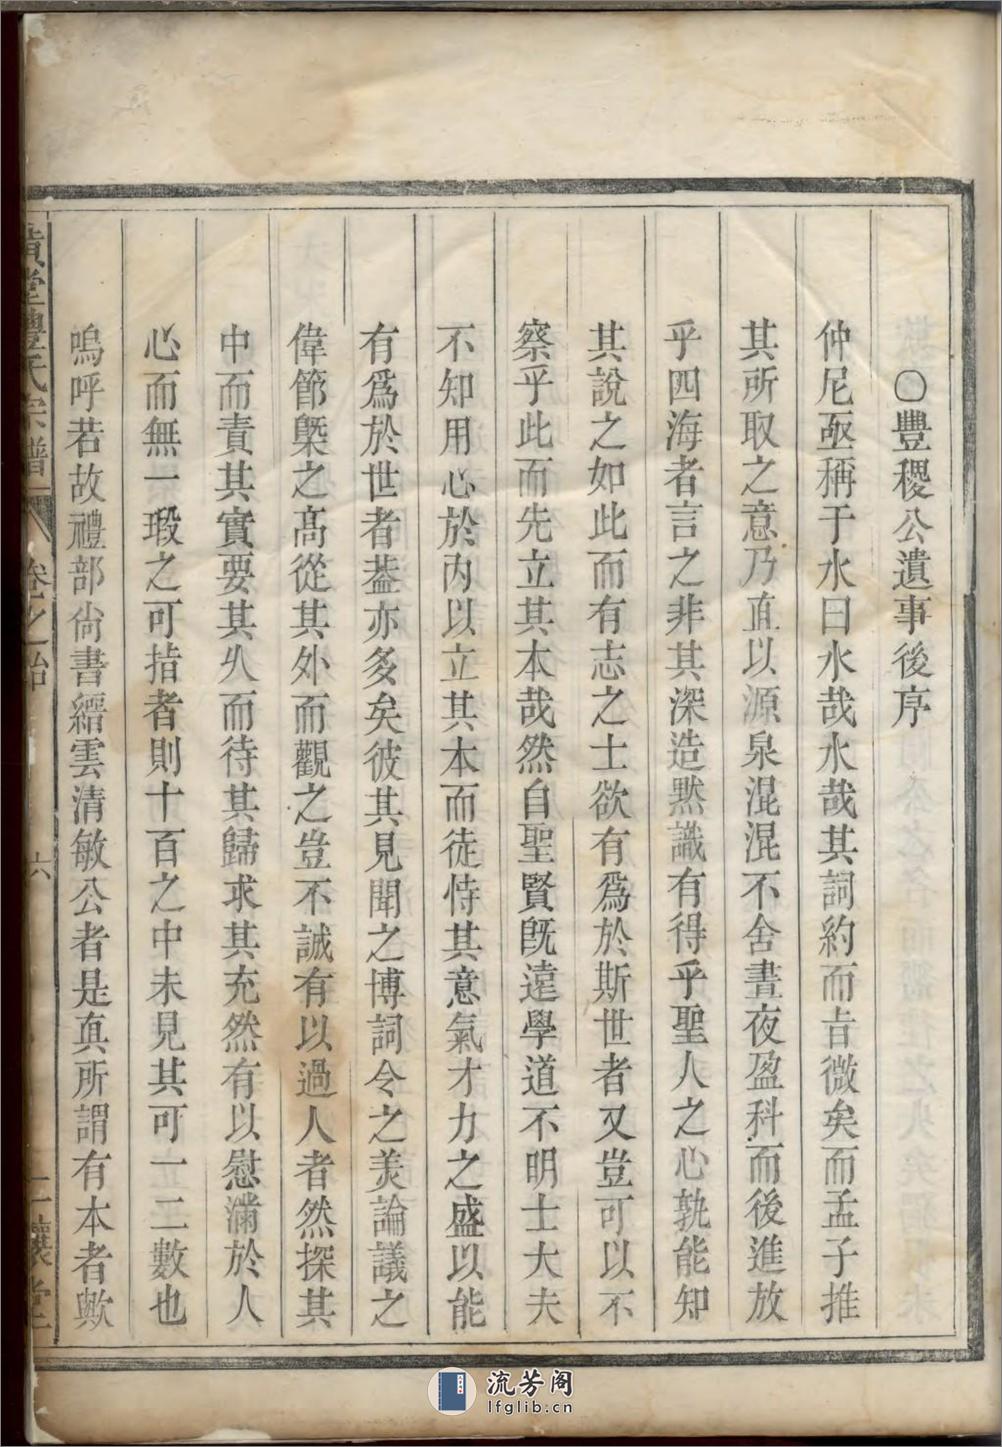 〇豐稷公遺事後序
仲尼亟稱于水曰水哉水哉其詞約而旨微矣而孟子推
其所取之意乃直以源泉混混不舍晝夜盈科而後進放
乎四海者言之非其深造黙識有得乎聖人之心孰能知
其說之如此而有志之士欲有爲於斯世者又豈可以不
察乎此而先立其本哉然自聖賢旣遠學道不明士大夫
不知用心於內以立其本而徒恃其意氣才力之盛以能
有爲於世者葢亦多矣彼其見聞之博詞令之美論議之
偉節槩之髙從其外而觀之豈不誠有以過人者然探其
中而責其實要其久而待其歸求其充然有以慰滿於人
心而無一瑕之可指者則十百之中未見其可一二數也
嗚呼若故禮部尙書縉雲清敏公者是眞所謂有本者歟
堂豐氏宗譜 卷之 六
流芳阁
lfglib.cn